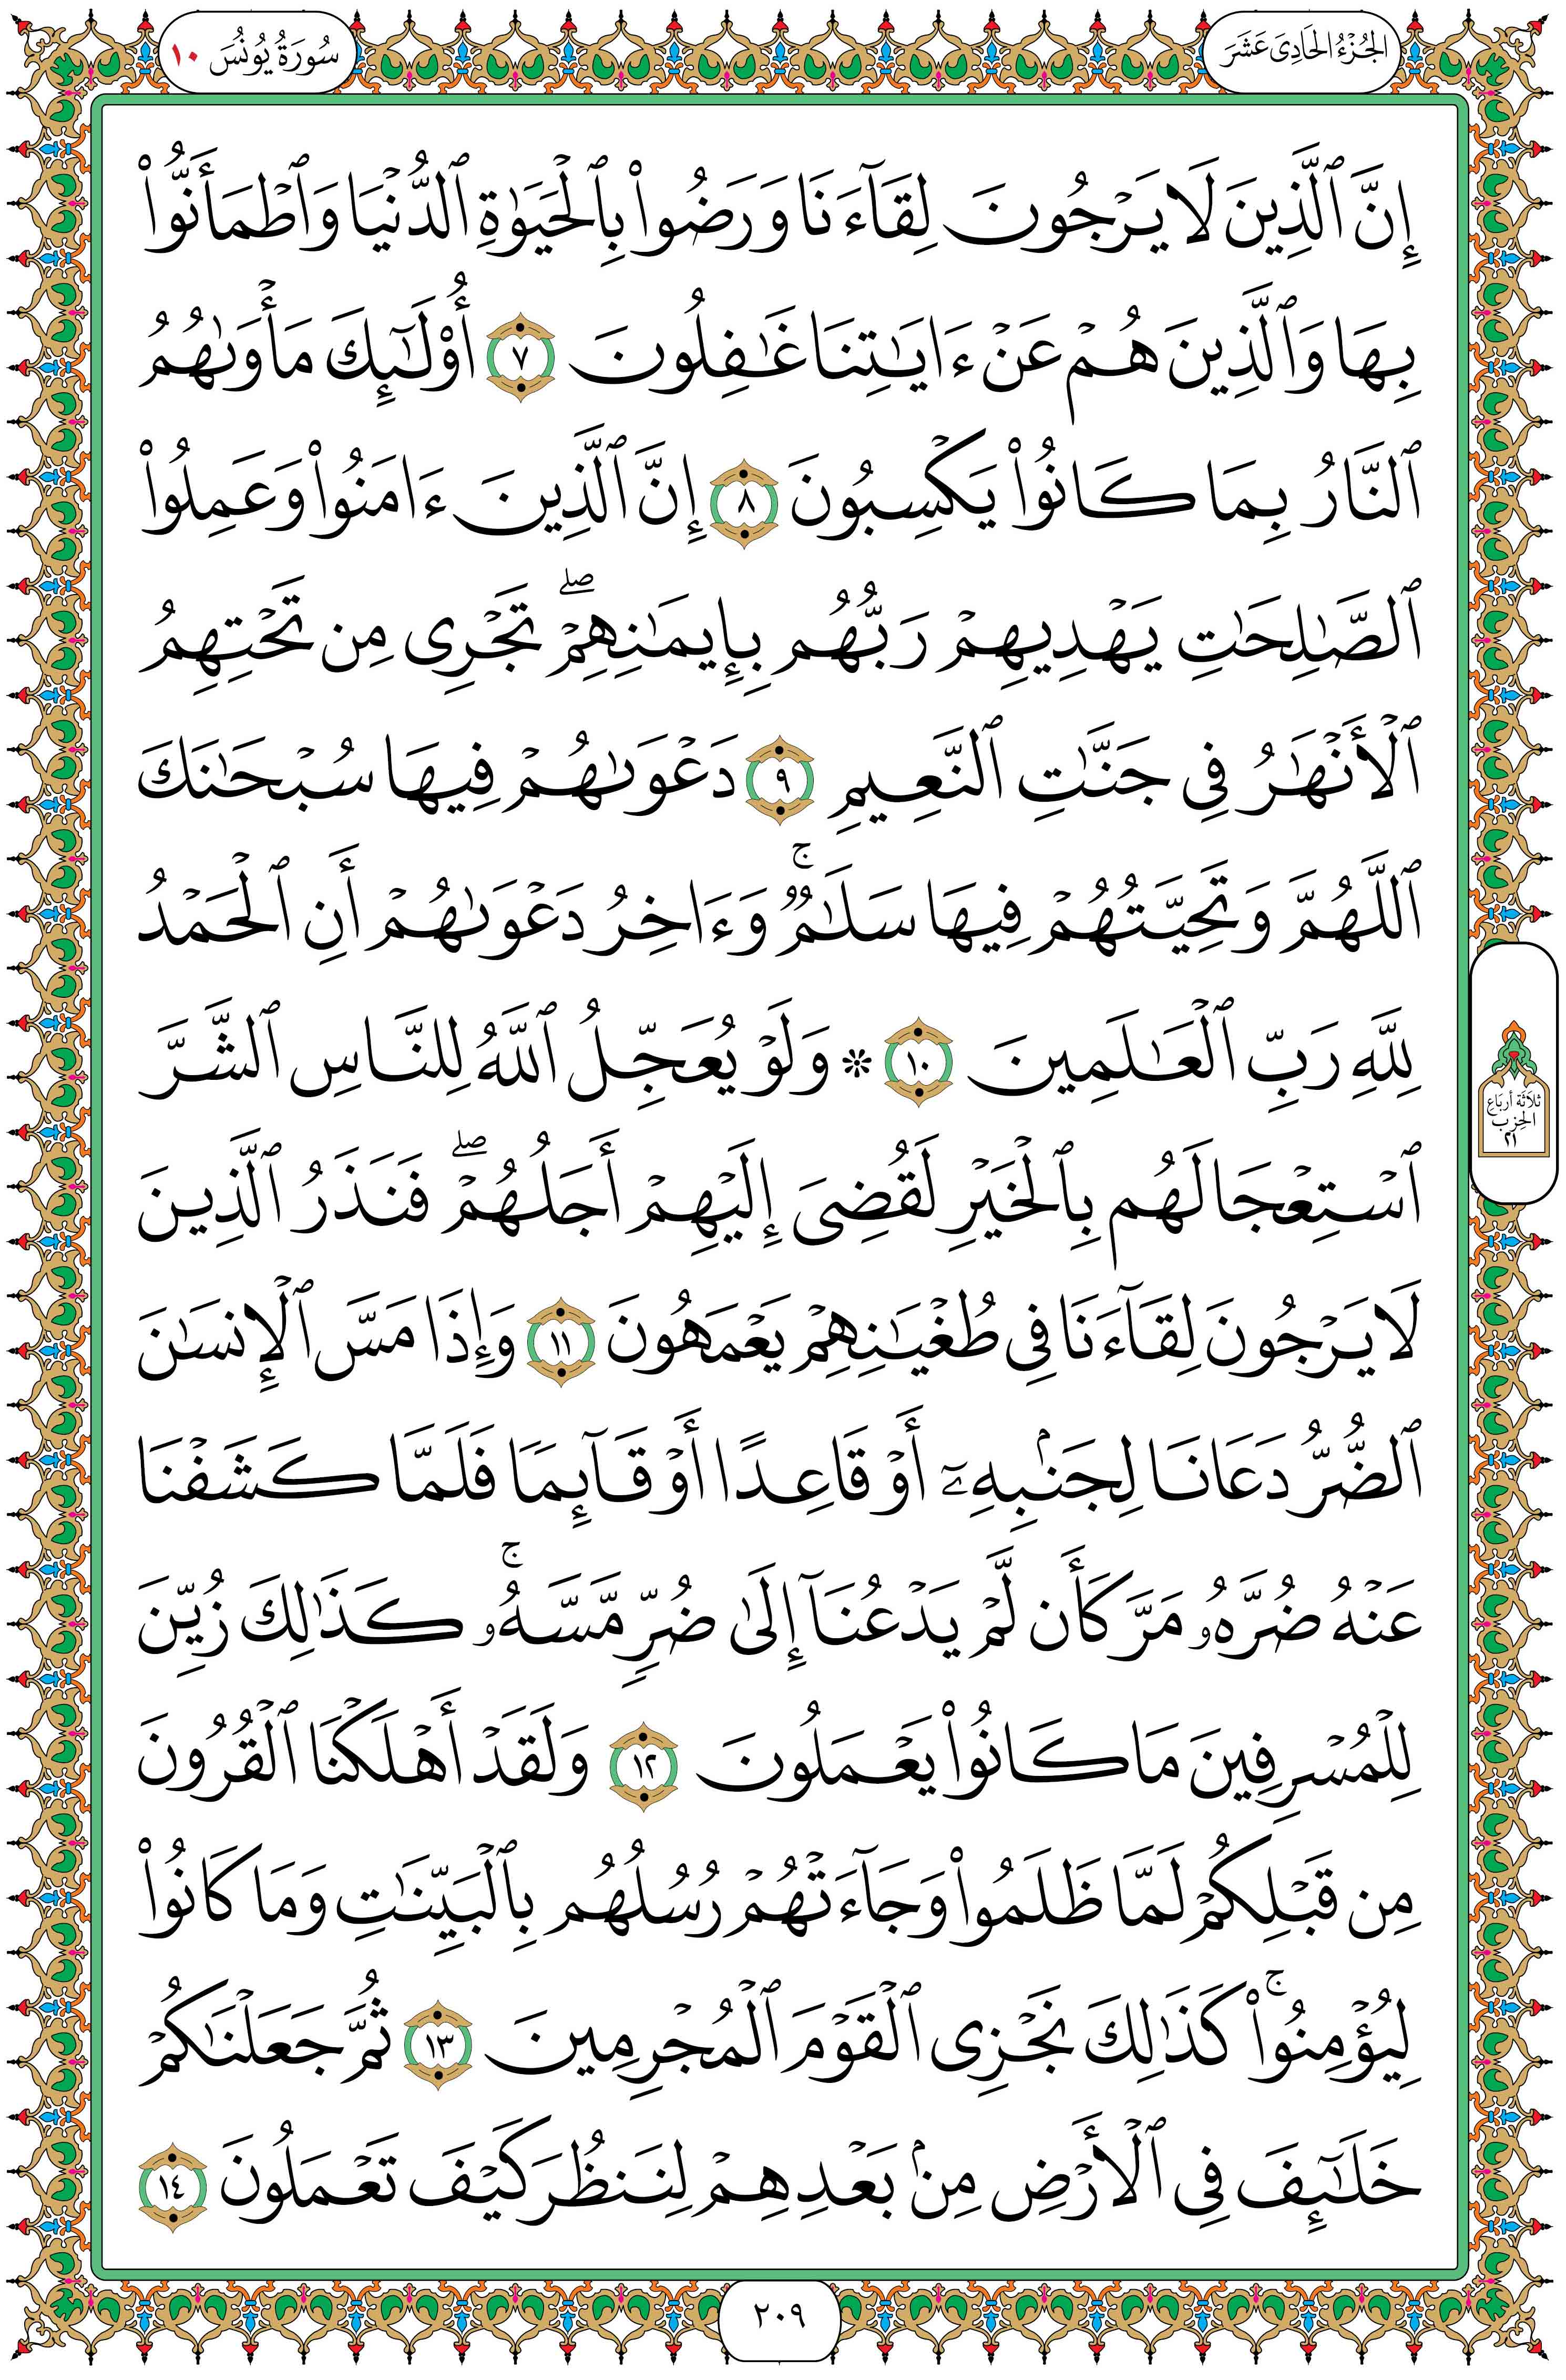 الجُزْءُ الحَادِىَ عَشَرَ
سُورَةُ يُونُسَ ١٠
إِنَّ ٱلَّذِينَ لَا يَرۡجُونَ لِقَآءَنَا وَرَضُواْ بِٱلۡحَيَوٰةِ ٱلدُّنۡيَا وَٱطۡمَأَنُّواْ
بِهَا وَٱلَّذِينَ هُمۡ عَنۡ ءَايَٰتِنَا غَٰفِلُونَ ٧ أُوْلَٰٓئِكَ مَأۡوَىٰهُمُ
ٱلنَّارُ بِمَا كَانُواْ يَكۡسِبُونَ ٨ إِنَّ ٱلَّذِينَ ءَامَنُواْ وَعَمِلُواْ
ٱلصَّٰلِحَٰتِ يَهۡدِيهِمۡ رَبُّهُم بِإِيمَٰنِهِمۡۖ تَجۡرِى مِن تَحۡتِهِمُ
ٱلۡأَنۡهَٰرُ فِى جَنَّٰتِ ٱلنَّعِيمِ ٩ دَعۡوَىٰهُمۡ فِيهَا سُبۡحَٰنَكَ
ٱللَّهُمَّ وَتَحِيَّتُهُمۡ فِيهَا سَلَٰمٞۚ وَءَاخِرُ دَعۡوَىٰهُمۡ أَنِ ٱلۡحَمۡدُ
لِلَّهِ رَبِّ ٱلۡعَٰلَمِينَ ١٠ ۞ وَلَوۡ يُعَجِّلُ ٱللَّهُ لِلنَّاسِ ٱلشَّرَّ
ٱسۡتِعۡجَالَهُم بِٱلۡخَيۡرِ لَقُضِىَ إِلَيۡهِمۡ أَجَلُهُمۡۖ فَنَذَرُ ٱلَّذِينَ
لَا يَرۡجُونَ لِقَآءَنَا فِى طُغۡيَٰنِهِمۡ يَعۡمَهُونَ ١١ وَإِذَا مَسَّ ٱلۡإِنسَٰنَ
ٱلضُّرُّ دَعَانَا لِجَنۢبِهِۦٓ أَوۡ قَاعِدًا أَوۡ قَآئِمٗا فَلَمَّا كَشَفۡنَا
عَنۡهُ ضُرَّهُۥ مَرَّ كَأَن لَّمۡ يَدۡعُنَآ إِلَىٰ ضُرّٖ مَّسَّهُۥۚ كَذَٰلِكَ زُيِّنَ
لِلۡمُسۡرِفِينَ مَا كَانُواْ يَعۡمَلُونَ ١٢ وَلَقَدۡ أَهۡلَكۡنَا ٱلۡقُرُونَ
مِن قَبۡلِكُمۡ لَمَّا ظَلَمُواْ وَجَآءَتۡهُمۡ رُسُلُهُم بِٱلۡبَيِّنَٰتِ وَمَا كَانُواْ
لِيُؤۡمِنُواْۚ كَذَٰلِكَ نَجۡزِى ٱلۡقَوۡمَ ٱلۡمُجۡرِمِينَ ١٣ ثُمَّ جَعَلۡنَٰكُمۡ
خَلَٰٓئِفَ فِى ٱلۡأَرۡضِ مِنۢ بَعۡدِهِمۡ لِنَنظُرَ كَيۡفَ تَعۡمَلُونَ ١٤
ثلاثة أرباع
الحزب
٢١
٢٠٩